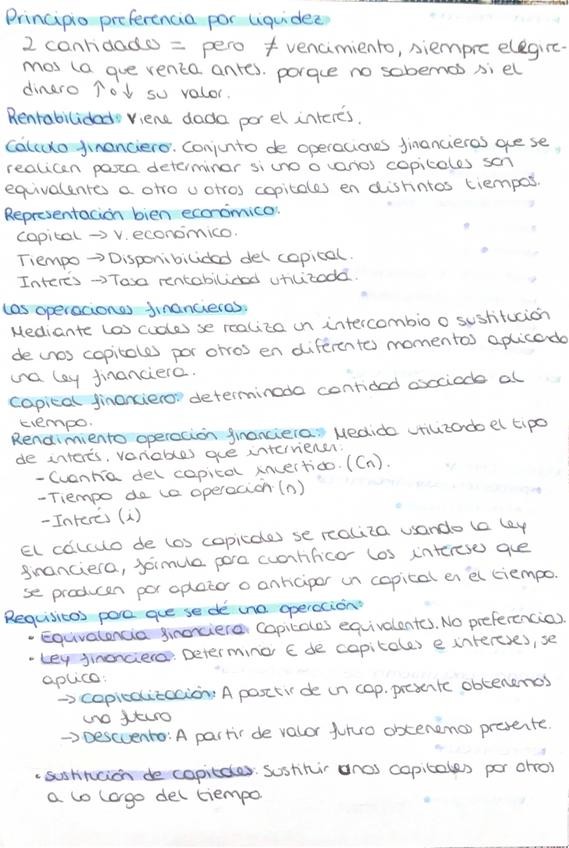 Principio preferencia por liquidez
2 cantidades = pero ≠ vencimiento, siempre elegire-
mos la que venza antes. porque no sabemos si el
dinero ↑ o ↓ su valor.
Rentabilidad: viene dada por el interés.
Cálculo financiero. Conjunto de operaciones financieras que se
realicen para determinar si uno o varios capitales son
equivalentes a otro u otros capitales en distintos tiempos.
Representación bien económico:
Capital → V. económico.
Tiempo → Disponibilidad del capital.
Interés → Tasa rentabilidad utilizada.
Las operaciones financieras:
Mediante las cuales se realiza un intercambio o sustitución
de unos capitales por otros en diferentes momentos aplicando
una ley financiera.
Capital financiero: determinada cantidad asociada al
tiempo.
Rendimiento operación financiera: Medida utilizando el tipo
de interés. Variables que intervienen:
- Cuantía del capital invertido. (Cn).
- Tiempo de la operación (n)
- Interés (i)
El cálculo de los capitales se realiza usando la ley
financiera, fórmula para cuantificar los intereses que
se producen por aplazar o anticipar un capital en el tiempo.
Requisitos para que se dé una operación:
• Equivalencia financiera. Capitales equivalentes. No preferencias.
• Ley financiera. Determinar € de capitales e intereses, se
aplica:
→ Capitalización: A partir de un cap. presente obtenemos
uno futuro
→ Descuento: A partir de valor futuro obtenemos presente.
• Sustitución de capitales. Sustituir unos capitales por otros
a lo largo del tiempo.